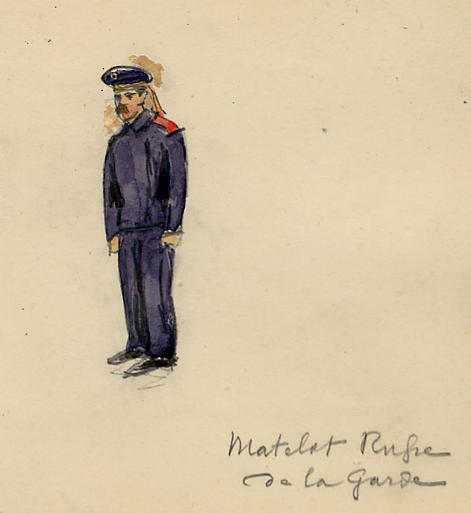 Matelot Russe
de la Garde